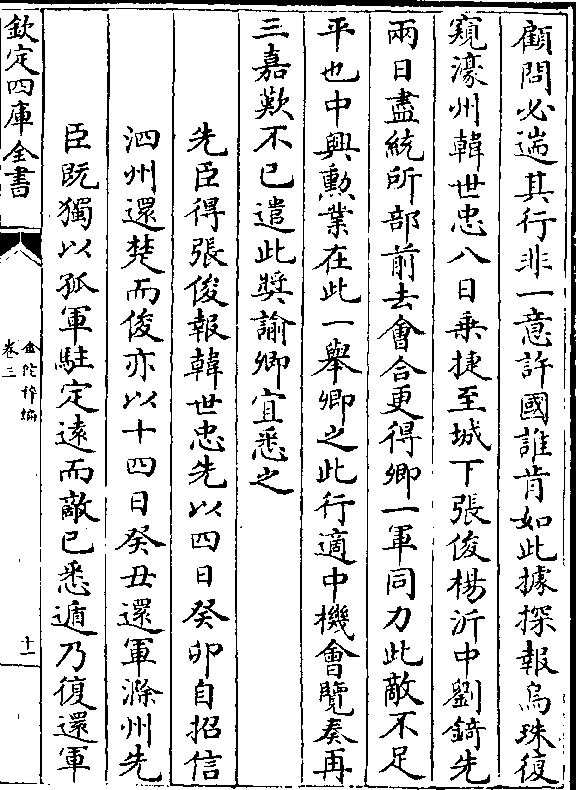 顧問必遄其行非一意許國誰肯如此據探報烏珠復
窺濠州韓世忠八日乗捷至城下張俊楊沂中劉錡先
兩日盡統所部前去會合更得卿一軍同力此敵不足
平也中興勲業在此一舉卿之此行適中機㑹覽奏再
三嘉歎不已遣此奬諭卿宜悉之
先臣得張俊報韓世忠先以四日癸卯自招信
泗州還楚而俊亦以十四日癸丑還軍滁州先
臣既獨以孤軍駐定遠而敵已悉遁乃復還軍
欽定四庫全書
金陀稡編
卷三
十二